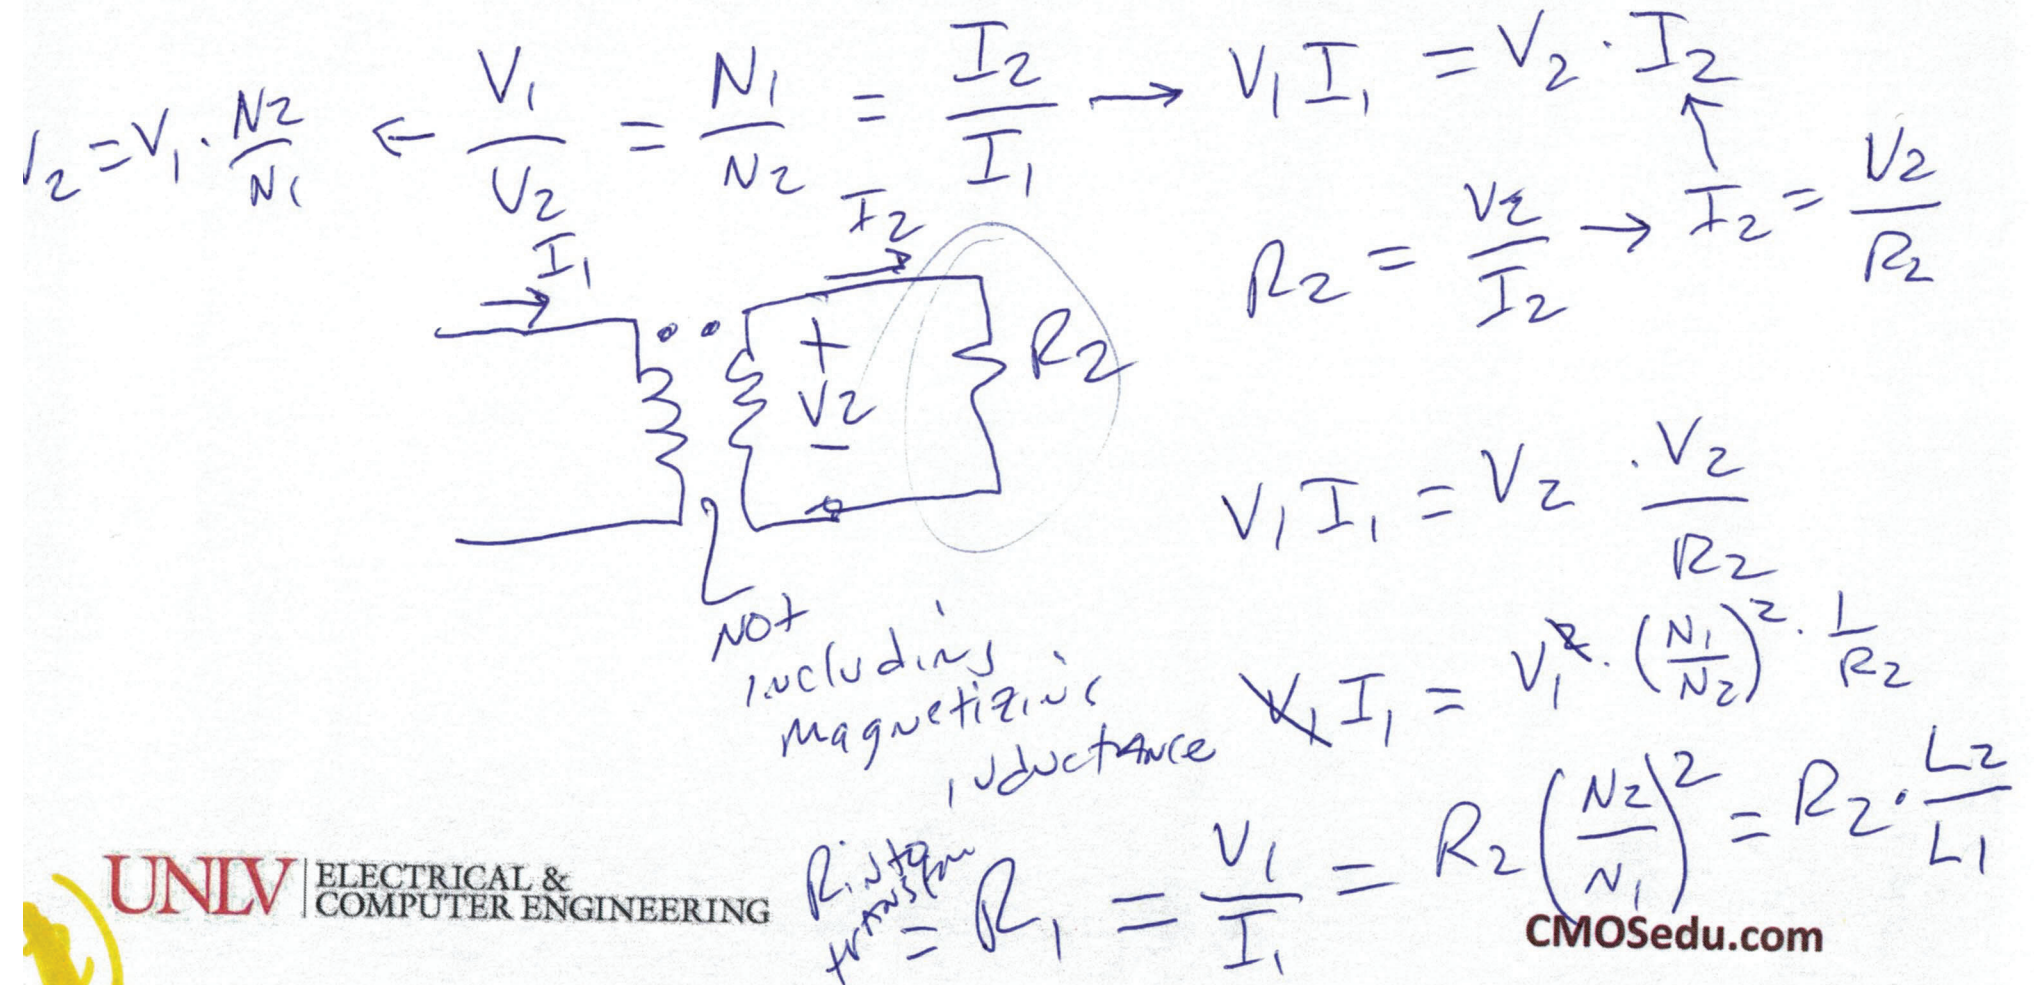 V2 = V1 · N2/N1 ← V1/V2 = N1/N2 = I2/I1 → V1 I1 = V2 · I2
R2 = V2/I2 → I2 = V2/R2
I1 I2
+ V2 − R2
V1 I1 = V2 · V2/R2
NOT
including
magnetizing
inductance
V1 I1 = V1² · (N1/N2)² · 1/R2
Rinto
transform
= R1 = V1/I1 = R2 (N2/N1)² = R2 · L2/L1
UNLV ELECTRICAL &
COMPUTER ENGINEERING
CMOSedu.com